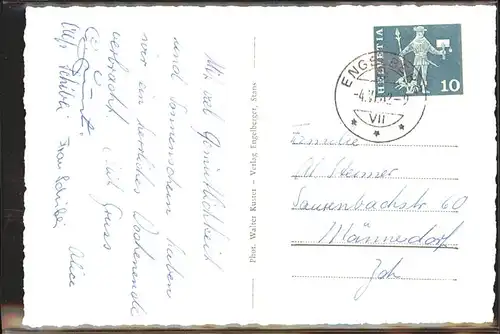 Mit viel Gemütlichkeit
und Sonnenschein haben
wir ein herrliches Wochenende
verbracht. Viel Gruss
Frau Schibli Alice
Phot. Walter Kuster – Verlag Engelberger's, Stans
HELVETIA
10
ENGE
-4.
VII
Familie
Steiner
Saurenbachstr 60
Männedorf
Zch